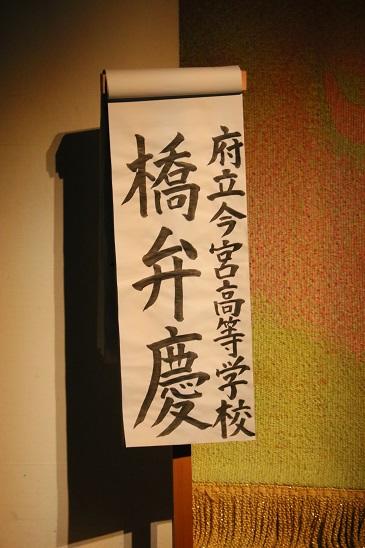 府立今宮高等学校
橋弁慶